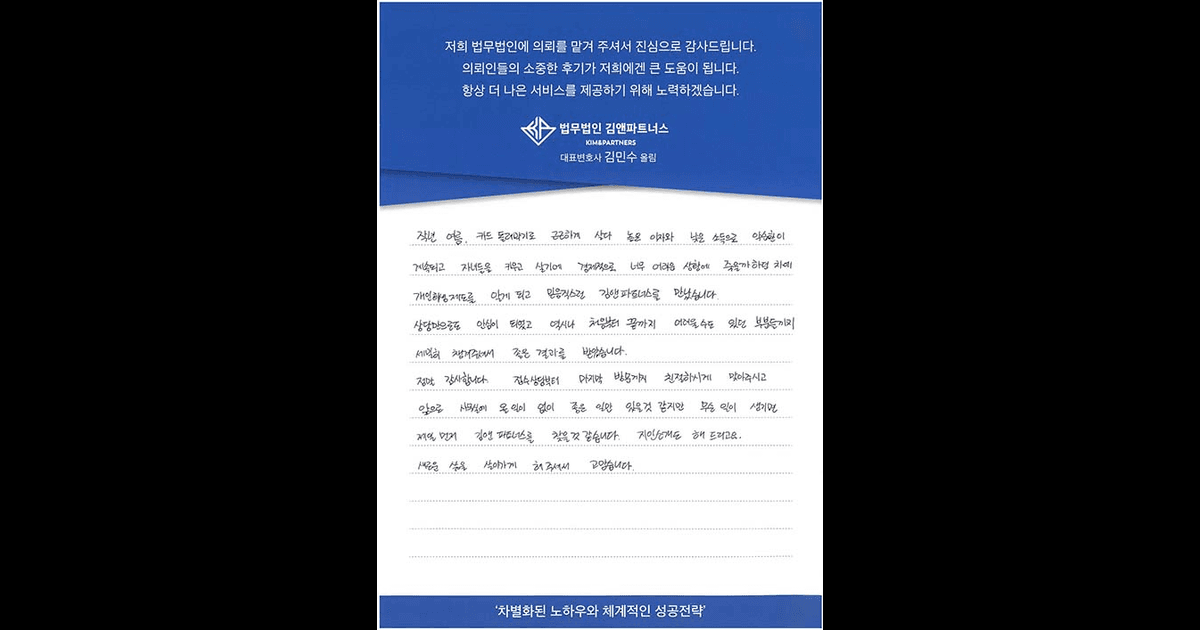 저희 법무법인에 의뢰를 맡겨 주셔서 진심으로 감사드립니다.
의뢰인들의 소중한 후기가 저희에겐 큰 도움이 됩니다.
항상 더 나은 서비스를 제공하기 위해 노력하겠습니다.
법무법인 김앤파트너스
KIM&PARTNERS
대표변호사 김민수 올림
작년 여름, 카드 돌려막기로 근근하게 살다 높은 이자와 낮은 소득으로 악순환이
계속되고 자녀들을 키우고 살기에 경제적으로 너무 어려운 상황에 죽을까 하던 차에
개인회생제도를 알게 되고 믿음직스런 김앤파트너스를 만났습니다.
상담만으로도 안심이 되었고 역시나 처음부터 끝까지 어려울수도 있던 부분들까지
세밀히 챙겨주셔서 좋은 결과를 받았습니다.
정말 감사합니다. 접수상담부터 마지막 방문까지 친절하시게 맞아주시고
앞으로 사무실에 올 일이 없이 좋은 일만 있을것 같지만 무슨 일이 생기면
제일 먼저 김앤 파트너스를 찾을것 같습니다. 지인소개도 해 드리고요.
새로운 삶을 살아가게 해 주셔서 고맙습니다.
'차별화된 노하우와 체계적인 성공전략'